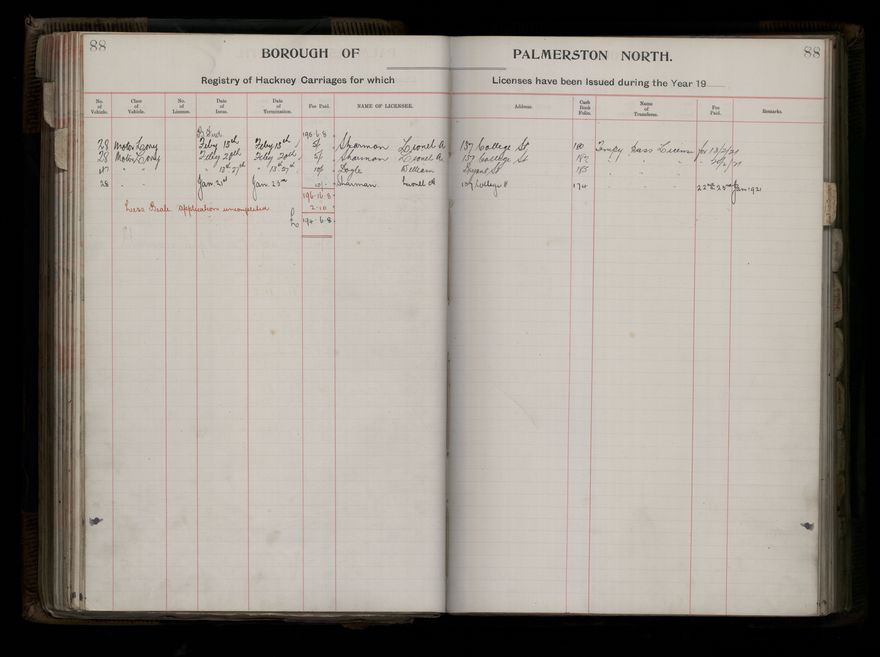 88
88
BOROUGH OF PALMERSTON NORTH.
Registry of Hackney Carriages for which Licenses have been Issued during the Year 19
No. of Vehicle. Class of Vehicle. No. of License. Date of Issue. Date of Termination. Fee Paid. NAME OF LICENSEE. Address. Cash Book Folio. Name of Transferee. Fee Paid. Remarks.
195.6.8
28 Motor Lorry Feby 13th Feby 13th 5/- Sharman Lionel A 137 College St 180 Tempy Pass License for 13/2/21
28 Motor Lorry Feby 20th Feby 20th 5/- Sharman Lionel A 137 College St " " 20/2/21
" " " 13th 27th " 13th 27th 10/- William Bryant St 185 " " "
28 " " Jan 23rd 10/- Sharman Lionel A 137 College St 174 " " 22nd 23rd Jan 1921
196.16.8
Less Beale application uncompleted 2.10
£ 194.6.8